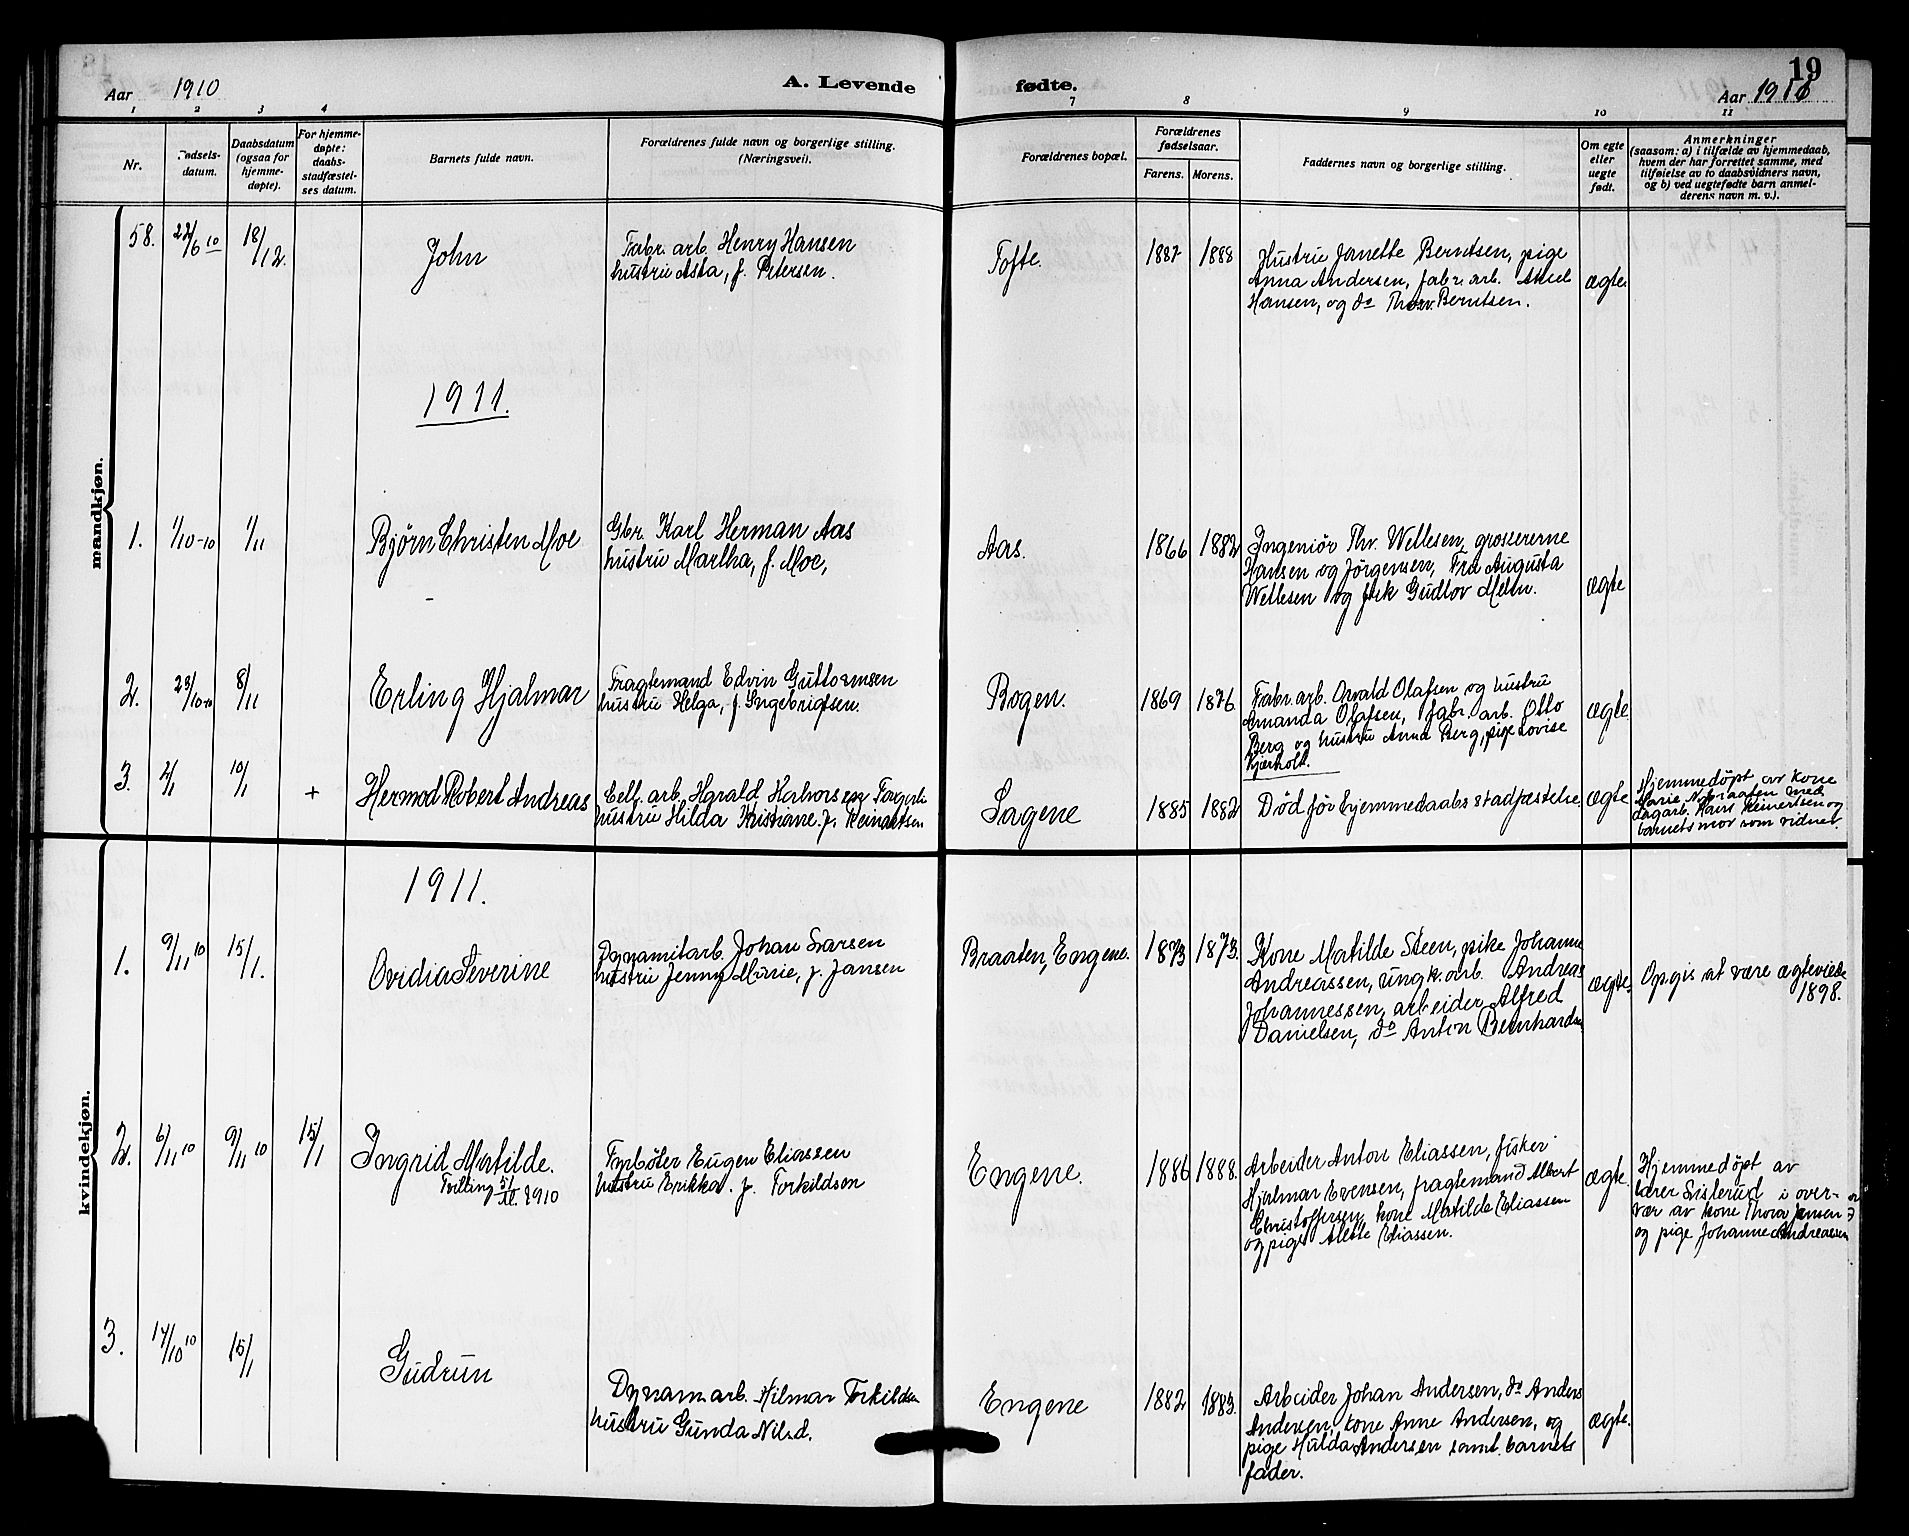 Aar 1910
A. Levende
fødte.
19
Aar 1910
1 2 3 4 7 8 9 10 11
Nr.
Fødsels-
datum.
Daabsdatum
(ogsaa for
hjemme-
døpte).
For hjemme-
døpte:
daabs-
stadfæstel-
ses datum.
Barnets fulde navn.
Forældrenes fulde navn og borgerlige stilling.
(Næringsvei).
Forældrenes bopæl.
Forældrenes
fødselsaar.
Farens. Morens.
Faddernes navn og borgerlige stilling.
Om egte
eller
uegte
født.
Anmerkninger
(saasom: a) i tilfælde av hjemmedaab,
hvem der har forrettet samme, med
tilføielse av to daabsvidners navn,
og b) ved uegtefødte barn anmel-
derens navn m. v.).
mandkjøn.
58. 22/6 10 18/12.
John
Fabr. arb. Henry Hansen
hustru Asta, f. Petersen.
Tofte.
1887 1888
Hustru Janette Berntsen, pige
Anna Andersen, fabr. arb.
Hansen, og do Thorv. Berntsen.
ægte
1911.
1. 1/10-10 1/11
Bjørn Christen Moe
Gbr. Karl Herman Aas
hustru Martha, f. Moe,
Aas.
1866 1882
Ingeniør Thv. Wellesen, grossererne
Hansen og Jörgensen, Fru Augusta
Wellesen og frk Gudlov
ægte
2. 23/10-10 8/11
Erling Hjalmar
Fragtemand Edvin Guttormsen
hustru Helga, f. Ingebrigtsen.
Bogen.
1869 1876
Fabr. arb. Osvald Olafsen og hustru
Amanda Olafsen, fabr. arb. Otto
Berg og hustru Anna Berg, pige Lovise
Kjærholt.
ægte.
3. 2/1 10/1 +
Hermod Robert Andreas
Cell. arb. Harald
hustru Hilda Kristiane f. Reinartsen
Sagene
1885 1882
Død før hjemmedaabs stadfæstelse
ægte
Hjemmedøpt av kone
Marie med
dagarb. Hans Reinertsen og
barnets mor som vidner.
kvindekjøn.
1911.
1. 9/11 10 15/1.
Ovidia Severine
Dynamitarb. Johan Larsen
hustru Jenny Marie, f. Jansen
Braaten, Engene.
1873 1873.
Kone Matilde Steen, pike Johanne
Andreassen, ungk. arb. Andreas
Johannessen, arbeider Alfred
Danielsen, do Anton Bernhardsen
ægte.
Opgis at være ægteviede
1898.
2. 6/11 10 9/11 10 15/1
Ingrid Matilde.
Tvilling 5/11. 1910
Fyrbøter Eugen Eliassen
hustru Erikka. f. Torkildsen
Engene.
1886 1888.
Arbeider Anton Eliassen, fisker
Hjalmar Evensen, fragtemand Albert
Christoffersen, kone Matilde Eliassen
og pige Alette Eliassen.
ægte.
Hjemmedøpt av
lærer Sislerud i over-
vær av kone Thora Jensen
og pige Johanne Andreassen
3. 14/10 10 15/1
Gudrun
Dynam. arb. Hilmar Torkildsen
hustru Gunda Nilsd.
Engene
1882 1883.
Arbeider Johan Andersen, do Anders
Andersen, kone Anne Andersen, og
pige Hulda Andersen samt barnets
fader.
ægte.